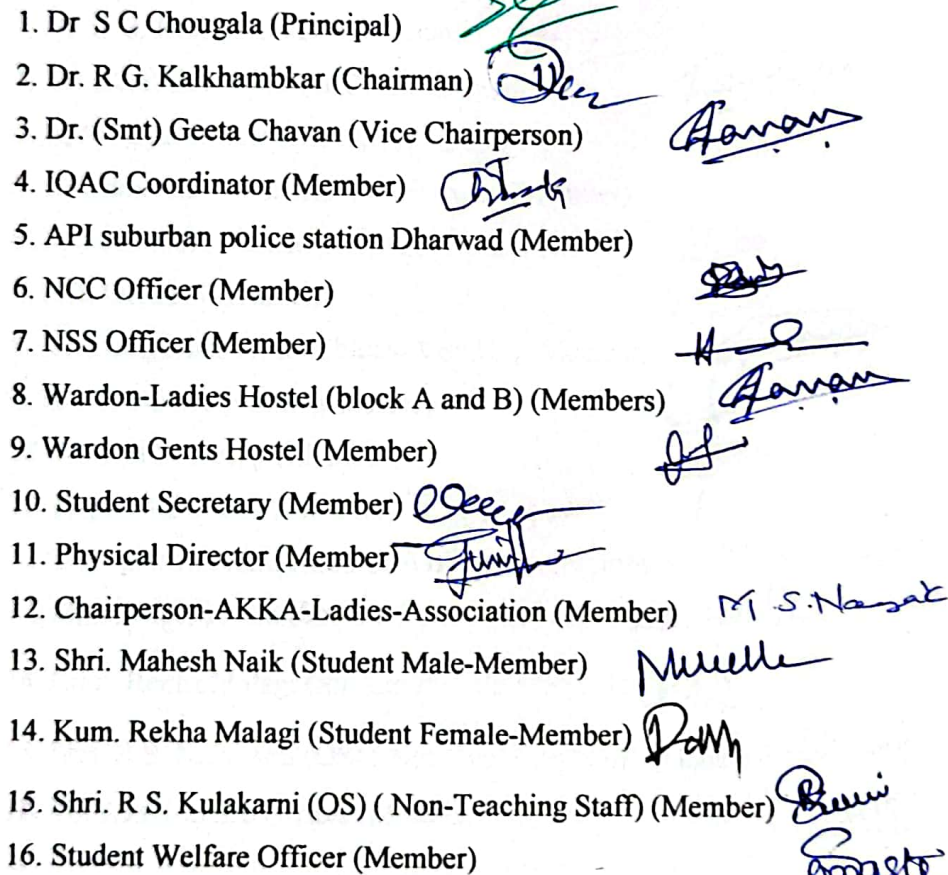 1. Dr S C Chougala (Principal)
2. Dr. R G. Kalkhambkar (Chairman)
3. Dr. (Smt) Geeta Chavan (Vice Chairperson)
4. IQAC Coordinator (Member)
5. API suburban police station Dharwad (Member)
6. NCC Officer (Member)
7. NSS Officer (Member)
8. Wardon-Ladies Hostel (block A and B) (Members)
9. Wardon Gents Hostel (Member)
10. Student Secretary (Member)
11. Physical Director (Member)
12. Chairperson-AKKA-Ladies-Association (Member) M S.
13. Shri. Mahesh Naik (Student Male-Member)
14. Kum. Rekha Malagi (Student Female-Member)
15. Shri. R S. Kulakarni (OS) ( Non-Teaching Staff) (Member)
16. Student Welfare Officer (Member)